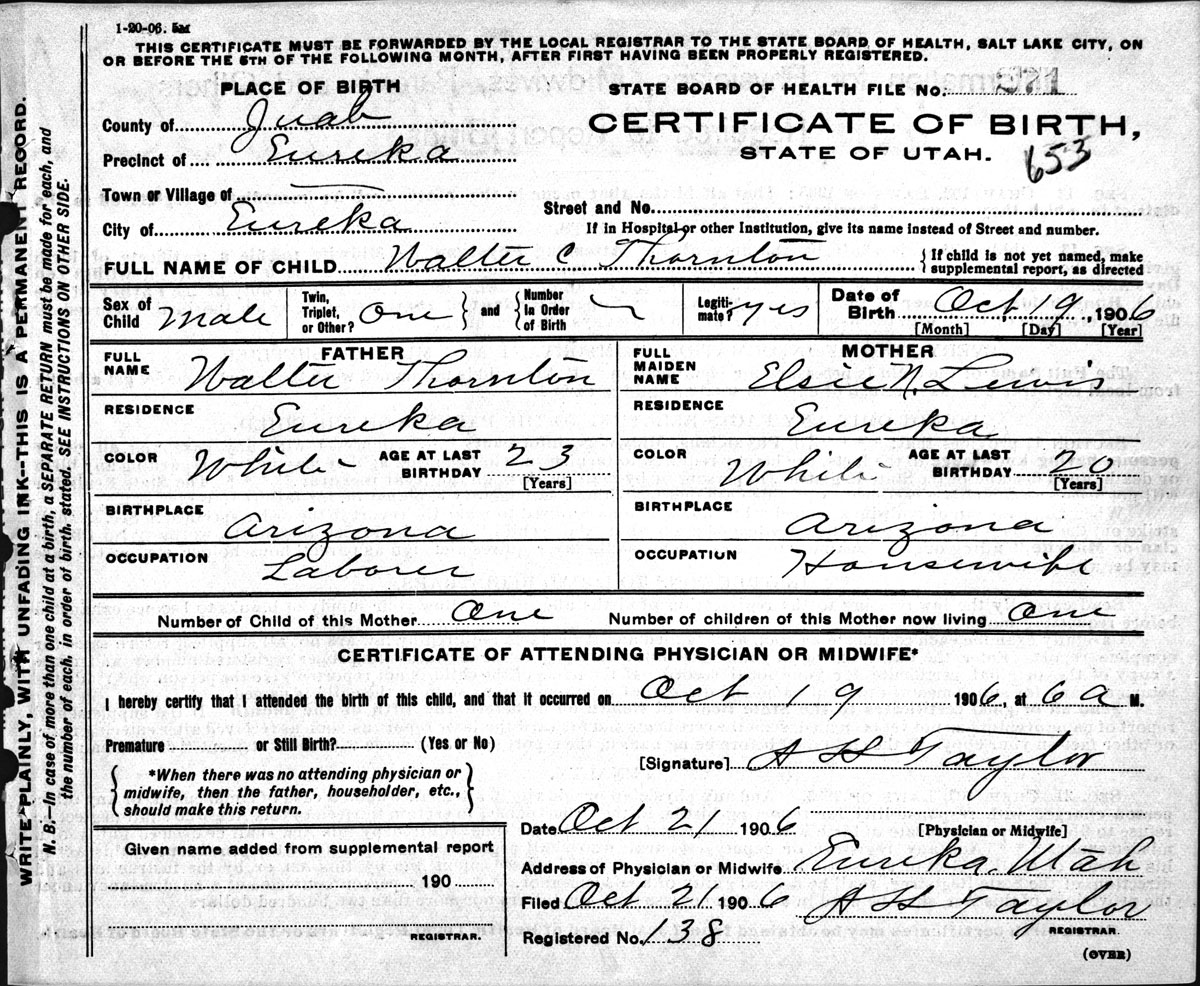 1-20-06. 5M
THIS CERTIFICATE MUST BE FORWARDED BY THE LOCAL REGISTRAR TO THE STATE BOARD OF HEALTH, SALT LAKE CITY, ON
OR BEFORE THE 5TH OF THE FOLLOWING MONTH, AFTER FIRST HAVING BEEN PROPERLY REGISTERED.
WRITE PLAINLY, WITH UNFADING INK--THIS IS A PERMANENT RECORD.
N. B.--In case of more than one child at a birth, a SEPARATE RETURN must be made for each, and
the number of each, in order of birth, stated. SEE INSTRUCTIONS ON OTHER SIDE.
PLACE OF BIRTH
STATE BOARD OF HEALTH FILE NO.
County of Juab
CERTIFICATE OF BIRTH,
Precinct of Eureka
STATE OF UTAH. 653
Town or Village of
Street and No.
City of Eureka
If in Hospital or other Institution, give its name instead of Street and number.
FULL NAME OF CHILD Walter C Thornton { If child is not yet named, make
supplemental report, as directed
Sex of Child Male Twin, Triplet, or Other? One } and { Number In Order of Birth Legiti- mate? yes Date of Birth Oct 19, 1906
[Month] [Day] [Year]
FATHER MOTHER
FULL NAME Walter Thornton FULL MAIDEN NAME Elsie N. Lewis
RESIDENCE Eureka RESIDENCE Eureka
COLOR White AGE AT LAST BIRTHDAY 23 [Years] COLOR White AGE AT LAST BIRTHDAY 20 [Years]
BIRTHPLACE Arizona BIRTHPLACE Arizona
OCCUPATION Laborer OCCUPATION Housewife
Number of Child of this Mother One Number of children of this Mother now living One
CERTIFICATE OF ATTENDING PHYSICIAN OR MIDWIFE*
I hereby certify that I attended the birth of this child, and that it occurred on Oct 19 1906, at 6 a M.
Premature or Still Birth? (Yes or No)
[Signature] A H Taylor
{ *When there was no attending physician or
midwife, then the father, householder, etc.,
should make this return. }
Date Oct 21 1906 [Physician or Midwife]
Given name added from supplemental report
Address of Physician or Midwife Eureka, Utah
190
Filed Oct 21 1906 A H Taylor
REGISTRAR.
Registered No. 138 REGISTRAR.
(OVER)